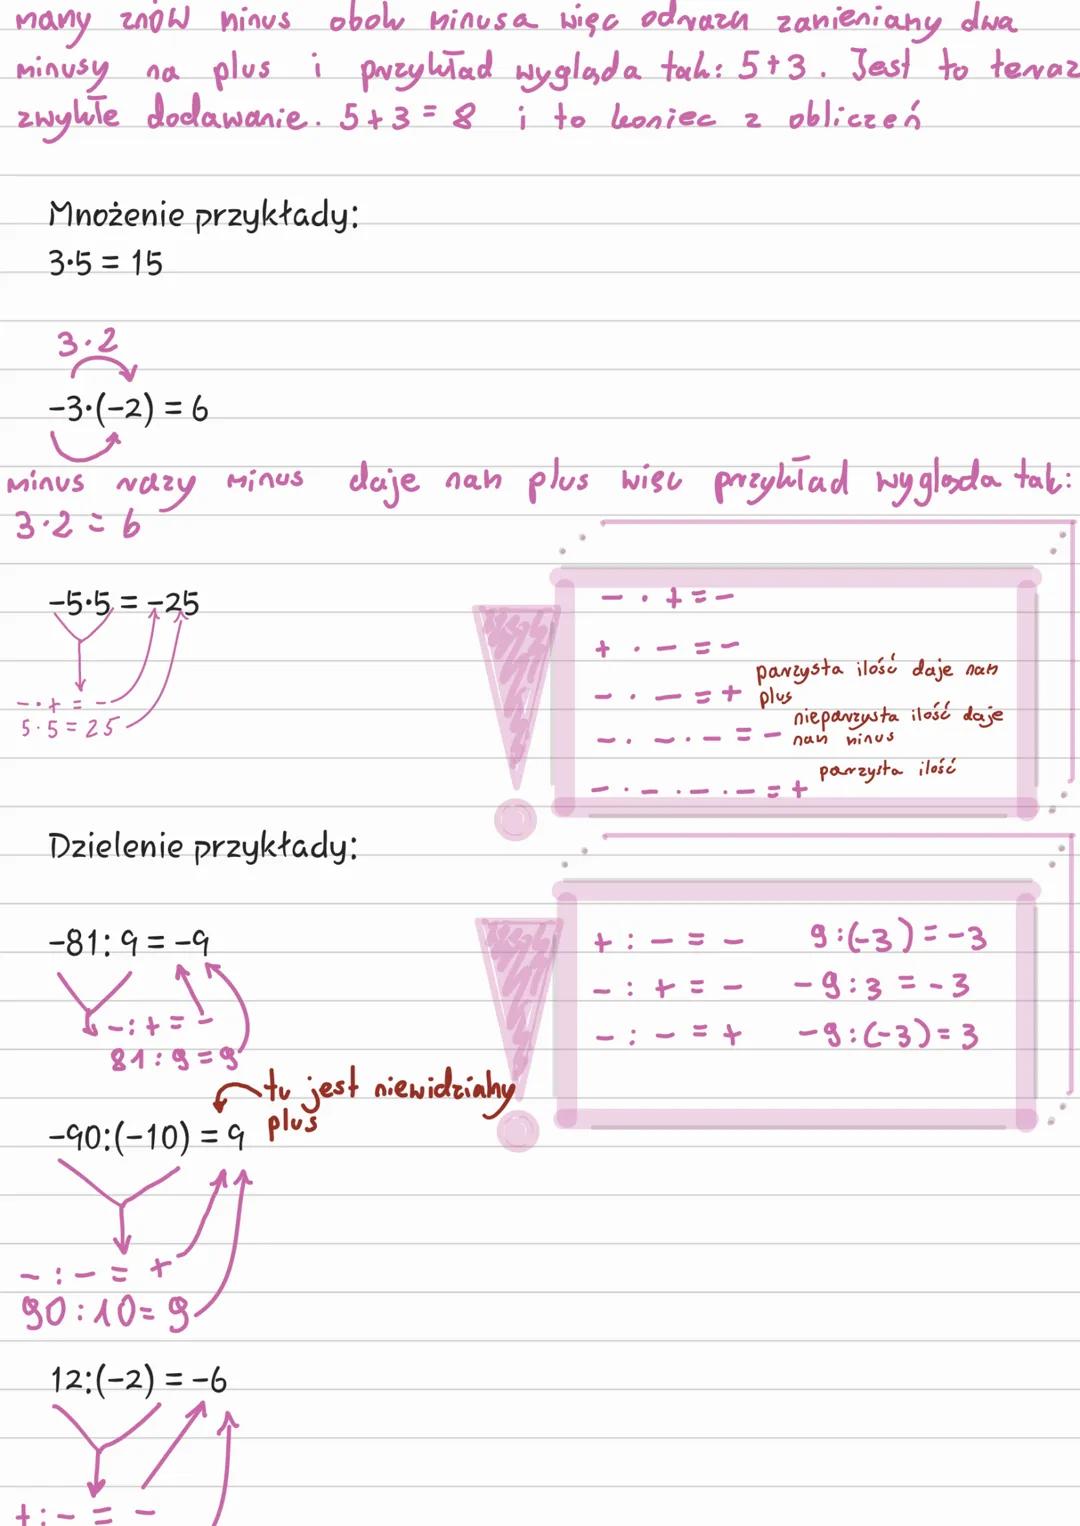 mamy znów minus obok minusa więc odrazu zamieniamy dwa
minusy na plus i przykład wygląda tak: 5+3. Jest to teraz
zwykłe dodawanie. 5+3=8 i to koniec z obliczeń
Mnożenie przykłady:
3·5 = 15
3·2
-3·(-2) = 6
minus razy minus daje nam plus więc przykład wygląda tak:
3·2=6
-5·5 = -25
-·+=-
5·5=25
-·+=-
+·-=-
-·-=+ parzysta ilość daje nam
plus
-·-·-=- nieparzysta ilość daje
nam minus
-·-·-·-=+ parzysta ilość
Dzielenie przykłady:
-81:9 = -9
-:+=-
81:9=9
tu jest niewidzialny
plus
-90:(-10) = 9
-:-=+
90:10=9
+:-=- 9:(-3)=-3
-:+=- -9:3=-3
-:-=+ -9:(-3)=3
12:(-2) = -6
+:-=-